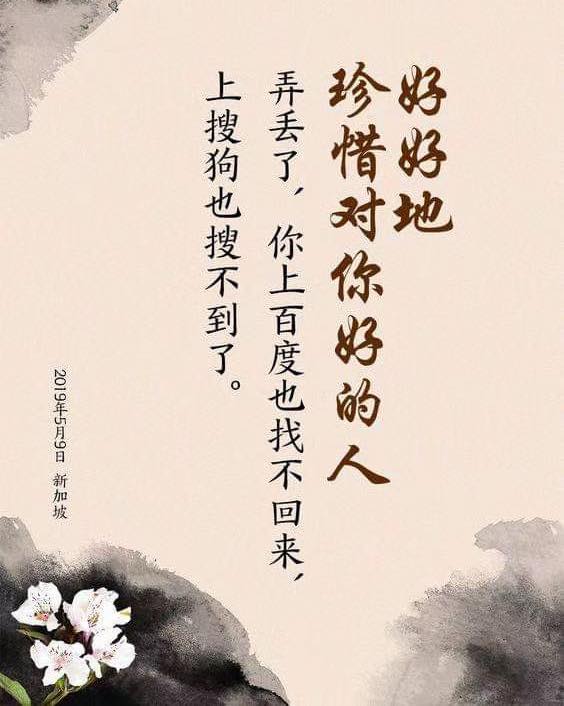 好好地
珍惜对你好的人
弄丢了，你上百度也找不回来，
上搜狗也搜不到了。
2019年5月9日 新加坡